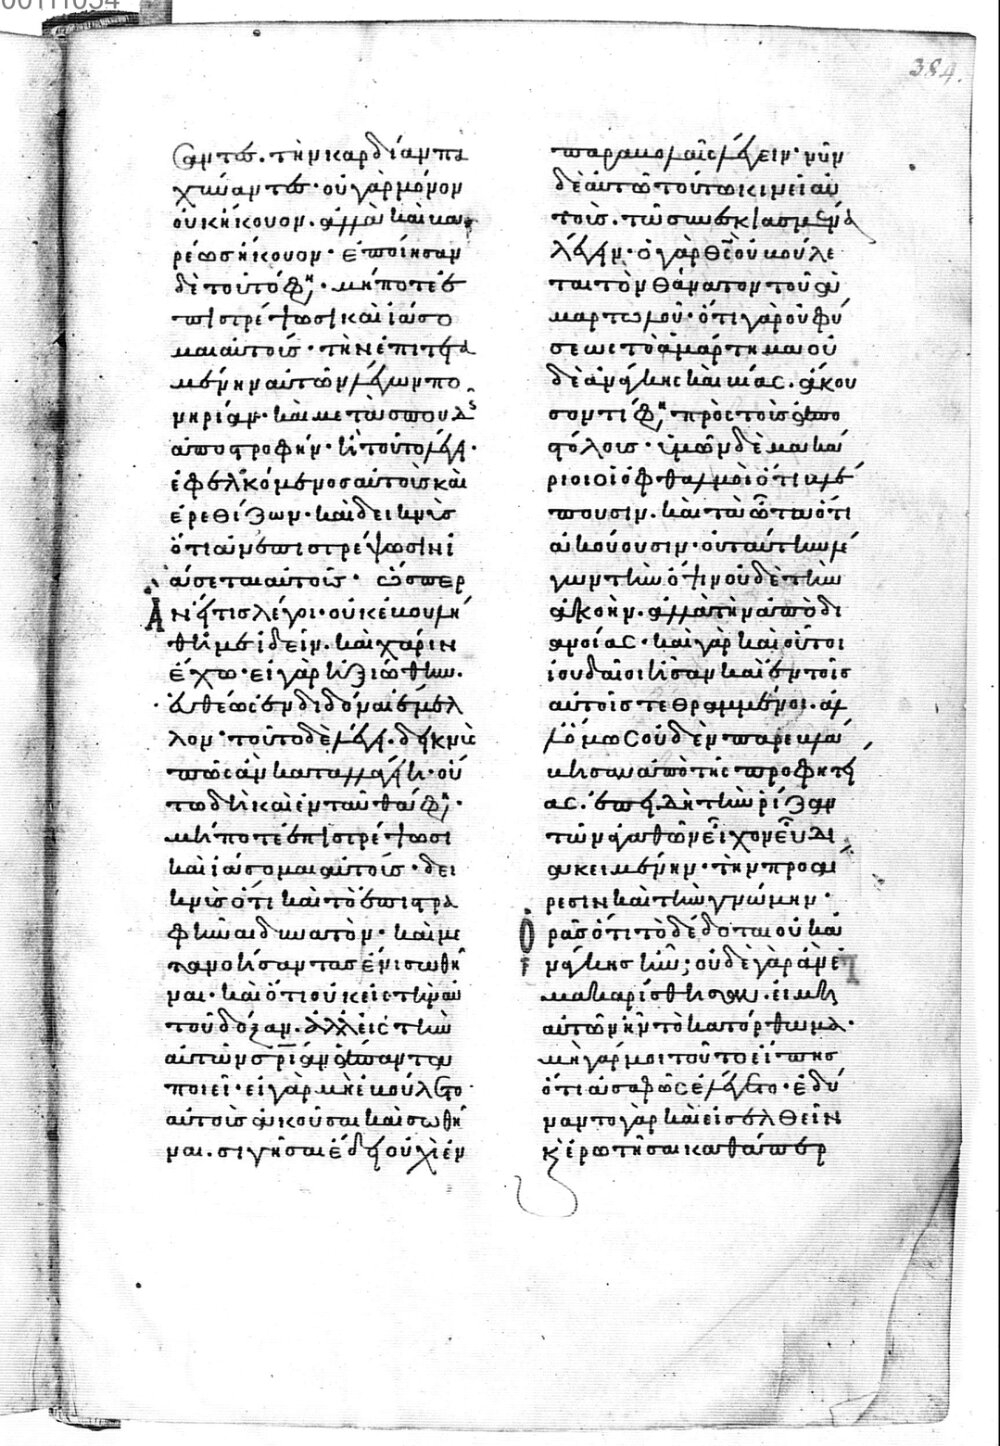 384.
ἑαυτῶ. τὴν καρδίαν πα
χυνάντων· οὐ γὰρ μόνον
οὐκ ἤκουον. ἀλλὰ καὶ βα
ρέως ἤκουον· ἐποίησαν
δὲ τοῦτό φη(σι). μήποτε ἐ
πιστρέψωσι καὶ ἰάσο
μαι αὐτούς· τὴν ἐπιτετα
μένην αὐτῶν λέγων πο
νηρίαν· καὶ μετὰ σπουδ(ῆς)
ἀποστροφήν· ἢ τοῦτο λέγει·
ἐφελκόμενος αὐτοὺς καὶ
ἐρεθίζων· καὶ δεικνὺς
ὅτι ἂν ἐπιστρέψωσιν ἰ
άσεται αὐτούς· ὥσπερ
ἂν εἴ τις λέγοι· οὐκ ἐβουλή
θη με ἰδεῖν. καὶ χάριν
ἔχω· εἰ γὰρ ἠξιώθην.
εὐθέως ἐνδιδόναι ἔμελ
λον· τοῦτο δὲ λέγει. δεικνὺς
πῶς ἂν καταλλαγείη· οὕ
τω δὴ καὶ ἐνταῦθά φη(σι)·
μήποτε ἐπιστρέψωσι
καὶ ἰάσομαι αὐτούς· δει
κνὺς ὅτι καὶ τὸ ἐπιστρα
φῆναι δυνατὸν· καὶ με
τανοήσαντας ἔνι σωθῆ
ναι· καὶ ὅτι οὐκ εἰς τὴν αὐ
τοῦ δόξαν. ἀλλ' εἰς τὴν
αὐτῶν σρίαν ἅπαντα
ποιεῖ· εἰ γὰρ μὴ ἐβούλετο
αὐτοὺς ἀκοῦσαι καὶ σωθῆ
ναι. σιγῆσαι ἔδει οὐχὶ ἐν
παραβολαῖς λέγειν· νῦν
δὲ αὐτῶ τούτω κινεῖ αὐ
τοὺς. τῶ συνεσκιασμένα
λέγειν· ὁ γὰρ θς οὐ βούλε
ται τὸν θάνατον τοῦ ἁ
μαρτωλοῦ· ὅτι γὰρ οὐ φύ
σεως τὸ ἁμάρτημα οὐ
δὲ ἀνάγκης καὶ βίας. ἄκου
σον τί φη(σι) πρὸς τοὺς ἀπο
στόλους· ὑμῶν δὲ μακά
ριοι οἱ ὀφθαλμοὶ ὅτι βλέ
πουσιν. καὶ τὰ ὦτα ὅτι
ἀκούουσιν· οὐ ταύτην λέ
γων τὴν ὄψιν οὐδὲ τὴν
ἀκοὴν. ἀλλὰ τὴν ἀπὸ δι
ανοίας· καὶ γὰρ καὶ οὗτοι
ἰουδαῖοι ἦσαν καὶ ἐν τοῖς
αὐτοῖς τεθραμμένοι. ἀλ
λ' ὅμως οὐδὲν παρεβλά
βησαν ἀπὸ τῆς προφητεί
ας. ἐπειδὴ τὴν ῥίζαν
τῶν ἀγαθῶν εἶχον εὖ δι
ακειμένην· τὴν προαί
ρεσιν καὶ τὴν γνώμην·
ὁρᾶς ὅτι τὸ δέδοται οὐκ ἀ
νάγκης ἦν; οὐδὲ γὰρ ἂν ἐ
μακαρίσθησαν. εἰ μὴ
αὐτῶν ἦν τὸ κατόρθωμα·
μὴ γάρ μοι τοῦτο εἴπης
ὅτι ἀσαφῶς ἐλέγετο· ἐδύ
ναντο γὰρ καὶ εἰσελθεῖν
κ(αὶ) ἐρωτῆσαι καθάπερ